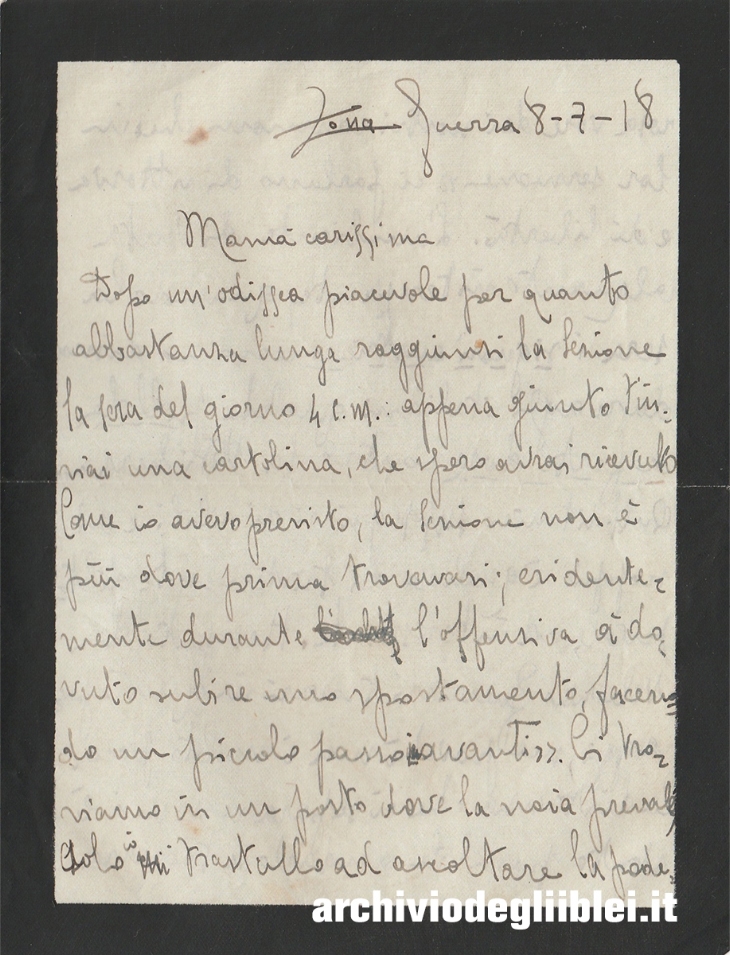 Zona Guerra 8-7-18
Mamà carissima
Dopo un'odissea piacevole per quanto
abbastanza lunga raggiunsi la Sezione
la sera del giorno 4 c.m.: appena giunto t'in-
viai una cartolina, che spero avrai ricevuto
Come io avevo previsto, la Sezione non è
più dove prima trovavasi; evidente-
mente durante l'offensiva, à do-
vuto subire uno spostamento, facen-
do un piccolo passo avanti>>. Ci tro-
viamo in un posto dove la noia prevale
Solo io mi trastullo ad ascoltare la pode-
archiviodegliiblei.it